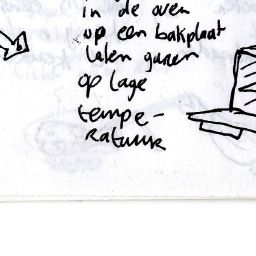 in de oven
op een bakplaat
laten garen
op lage
tempe-
ratuur